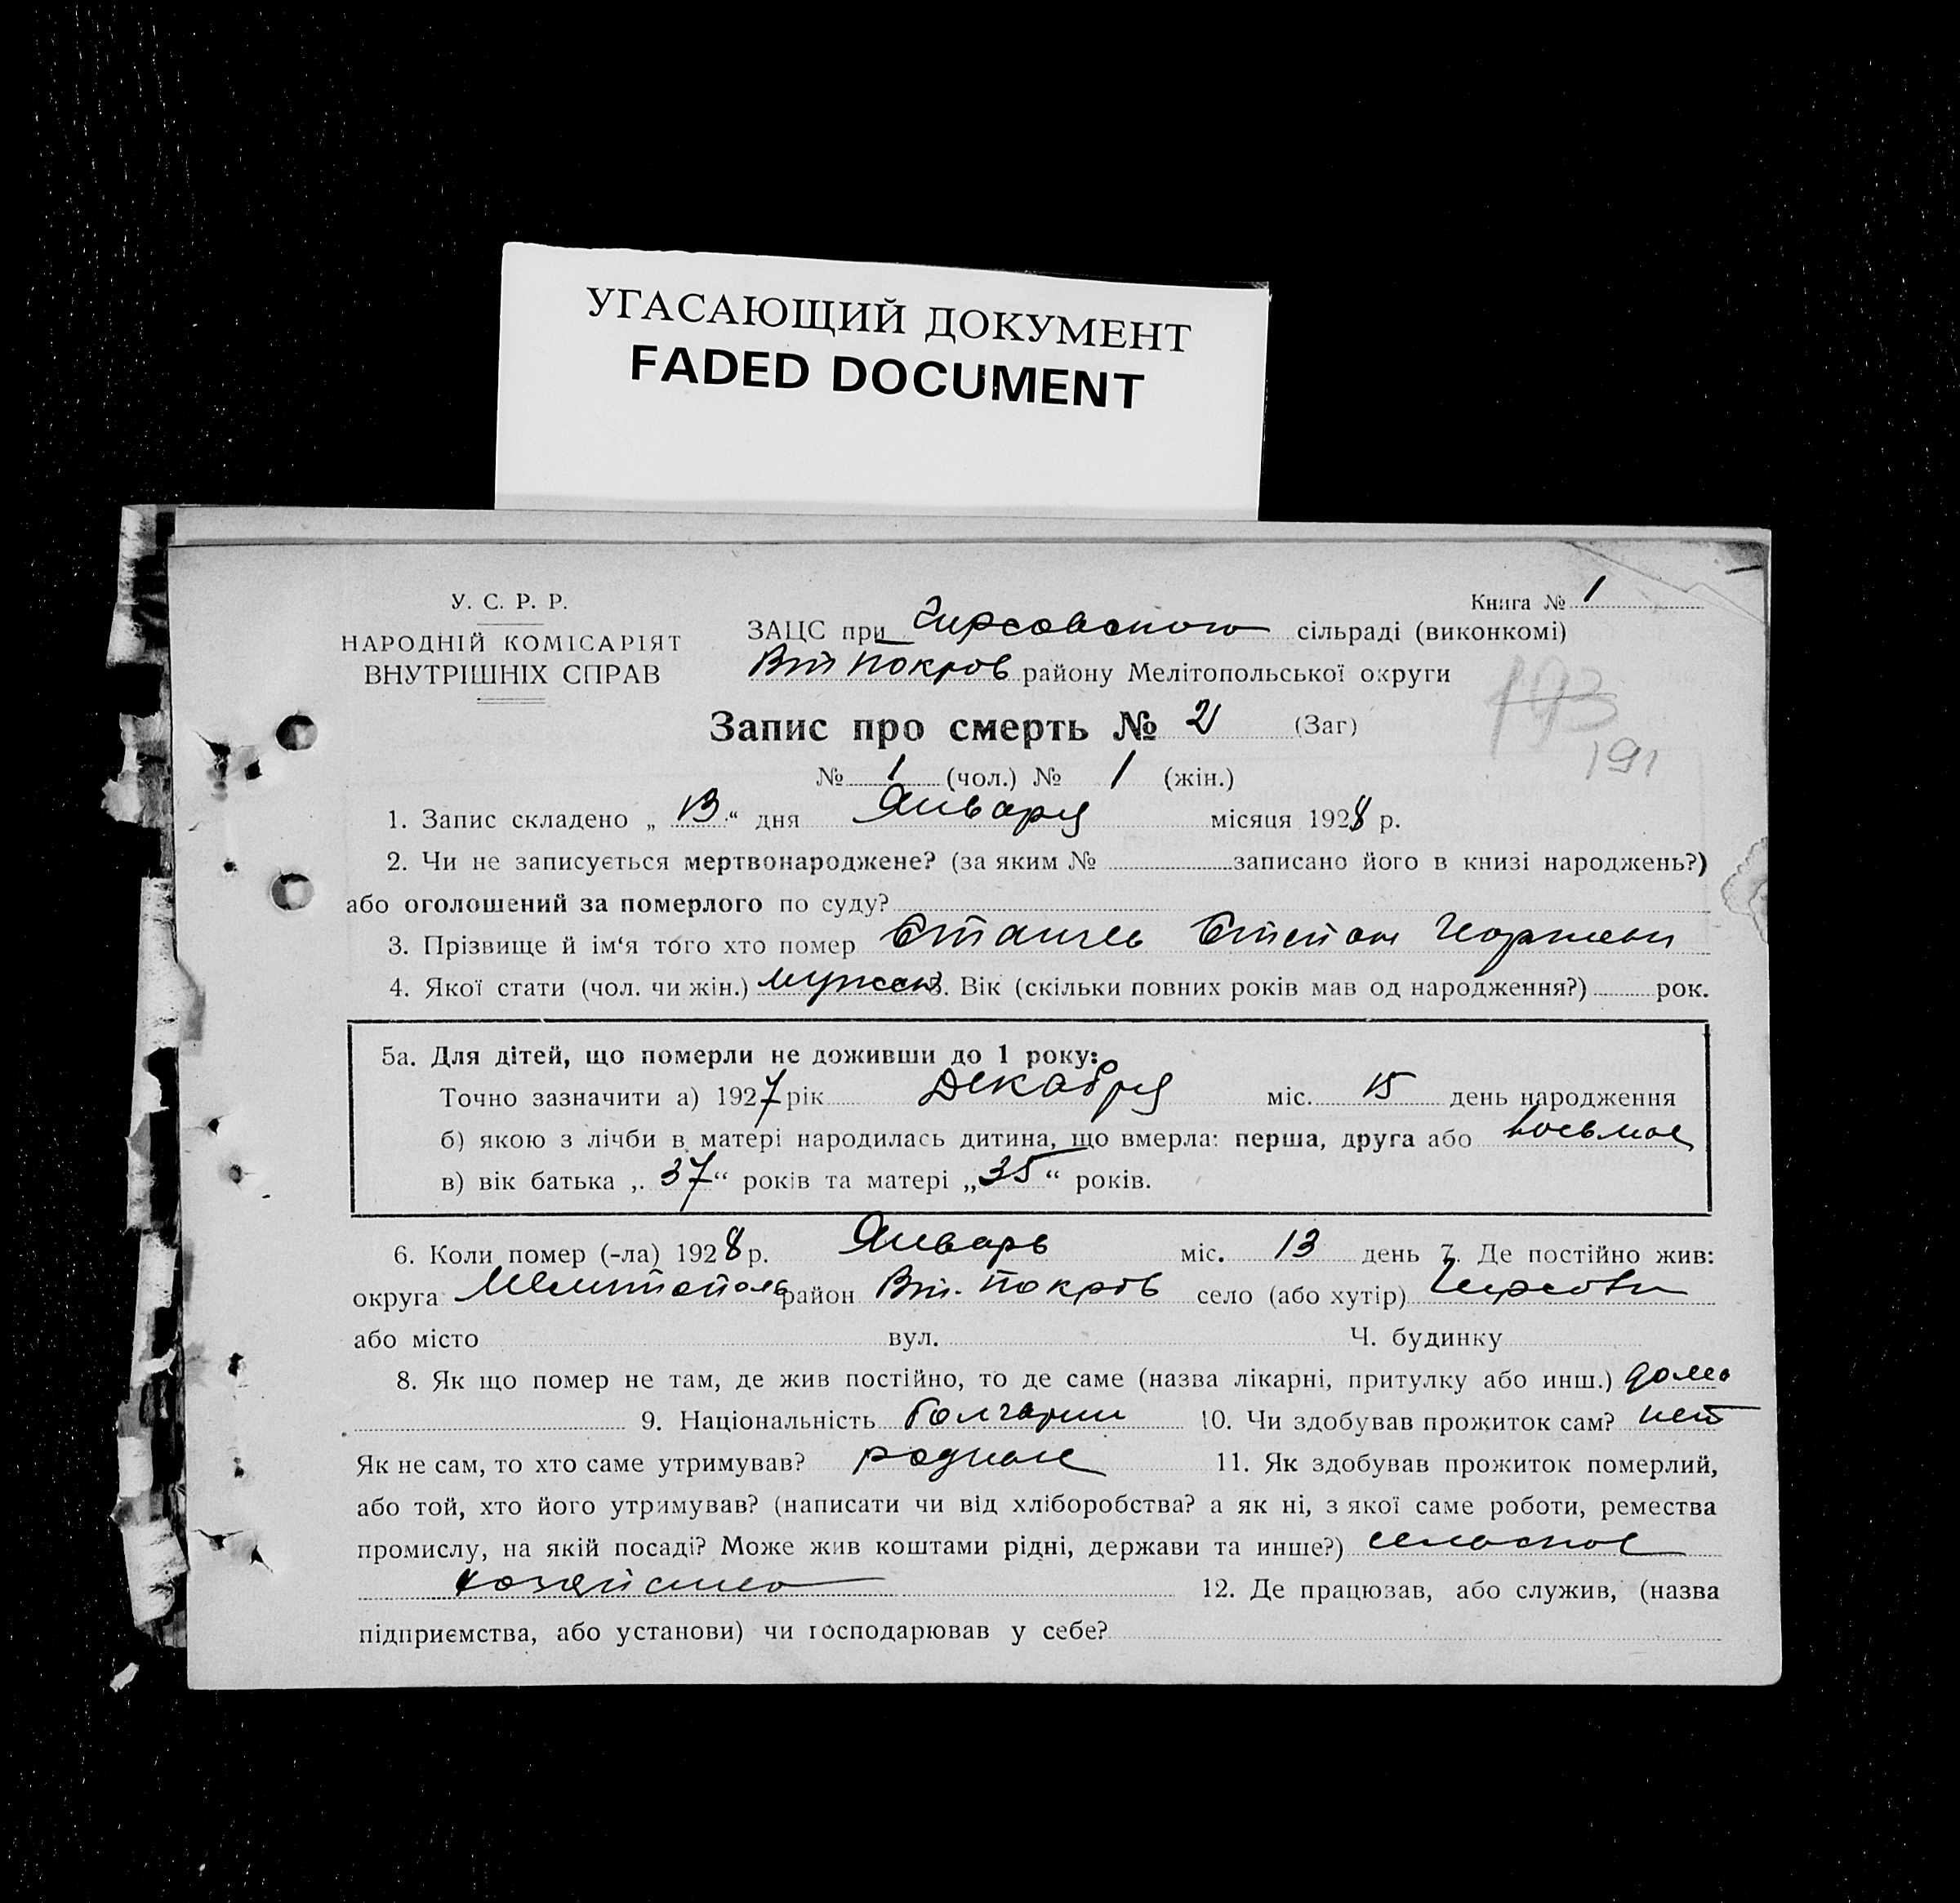 УГАСАЮЩИЙ ДОКУМЕНТ
FADED DOCUMENT
У. С. Р. Р.
НАРОДНІЙ КОМІСАРІЯТ
ВНУТРІШНІХ СПРАВ
Книга № 1
ЗАЦС при Гирсовского сільраді (виконкомі)
Вт Покров району Мелітопольської округи
193
191
Запис про смерть № 2 (Заг)
№ 1 (чол.) № 1 (жін.)
1. Запис складено „ 13 “ дня Января місяця 1928 р.
2. Чи не записується мертвонароджене? (за яким № записано його в книзі народжень?)
або оголошений за померлого по суду?
3. Прізвище й ім‘я того хто помер Степан
4. Якої стати (чол. чи жін.) мужск 5. Вік (скільки повних років мав од народження?) рок.
5а. Для дітей, що померли не доживши до 1 року:
Точно зазначити а) 1927 рік Декабря міс. 15 день народження
б) якою з лічби в матері народилась дитина, що вмерла: перша, друга або восьмое
в) вік батька „ 37 “ років та матері „ 35 “ років.
6. Коли помер (-ла) 1928 р. Январь міс. 13 день 7. Де постійно жив:
округа Мелитополь район Вт. Покров село (або хутір) Гирсовка
або місто вул. Ч. будинку
8. Як що помер не там, де жив постійно, то де саме (назва лікарні, притулку або инш.) дома
9. Національність болгарин 10. Чи здобував прожиток сам? нет
Як не сам, то хто саме утримував? родные 11. Як здобував прожиток померлий,
або той, хто його утримував? (написати чи від хліборобства? а як ні, з якої саме роботи, ремества
промислу, на якій посаді? Може жив коштами рідні, держави та инше?) сельское
хозяйство 12. Де працював, або служив, (назва
підприємства, або установи) чи господарював у себе?